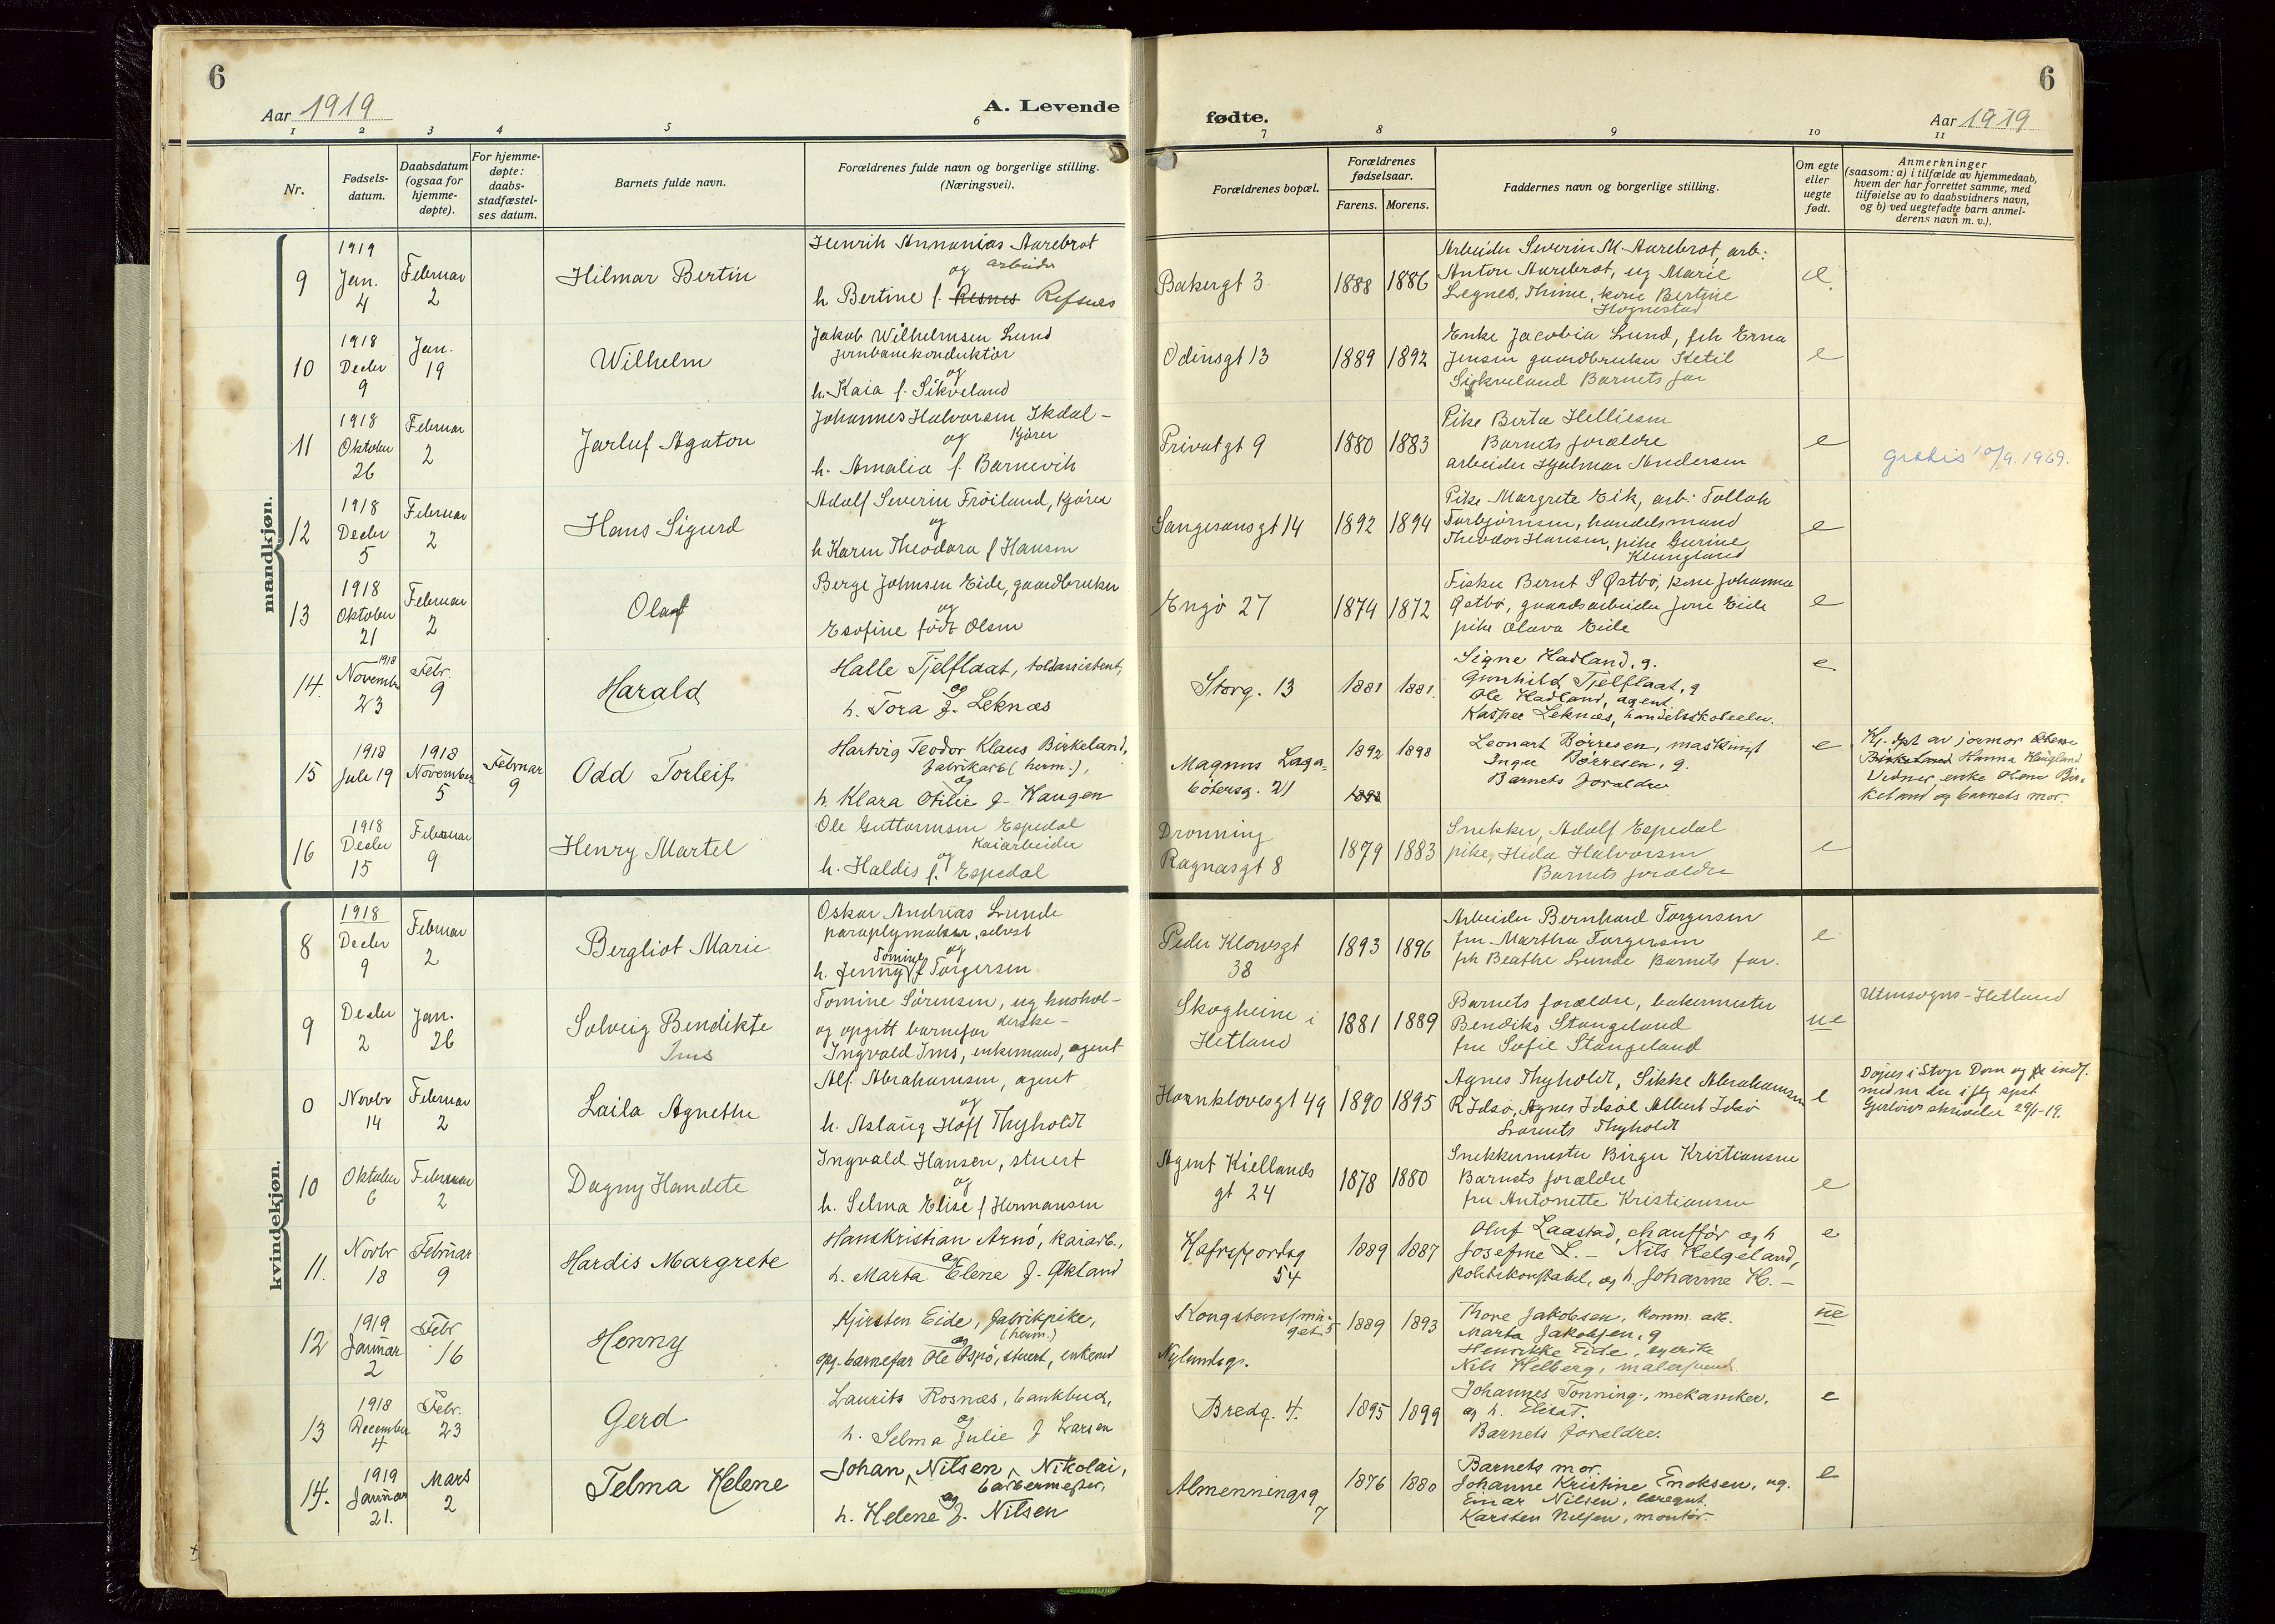 6
Aar 1919
A. Levende
1
2
3
4
5
6
Nr.
Fødsels-
datum.
Daabsdatum
(ogsaa for
hjemme-
døpte).
For hjemme-
døpte:
daabs-
stadfæstel-
ses datum.
Barnets fulde navn.
Forældrenes fulde navn og borgerlige stilling.
(Næringsvei).
fødte.
Aar 1919
6
7
8
9
10
11
Forældrenes bopæl.
Forældrenes
fødselsaar.
Farens.
Morens.
Faddernes navn og borgerlige stilling.
Om egte
eller
uegte
født.
Anmerkninger
(saasom: a) i tilfælde av hjemmedaab,
hvem der har forrettet samme, med
tilføielse av to daabsvidners navn,
og b) ved uegtefødte barn anmel-
derens navn m. v.).
mandkjøn.
9
1919
Jan.
4
Februar
2
Hilmar Bertin
Henrik Annanias Aarebrot
og arbeider
h Bertine f. Resnes Refsnes
Bakergt 3
1888 1886
Arbeider Severin M. Aarebrot, arb:
Anton Aarebrot, ug Marie
Legnes, Thime, kone Bertine
Hognestad
e
10
1918
Decbr
9
Jan.
19
Wilhelm
Jakob Wilhelmsen Lund
jernbanekonduktør
og
h. Kaia f. Sikveland
Odinsgt 13
1889 1892
Enke Jacobia Lund, frk Erna
Jensen gaardbruker Ketil
Sikveland Barnets far
e
11
1918
Oktober
26
Februar
2
Jarluf Agaton
Johannes Halvorsen Ikdal -
og kjører
h. Amalia f. Barnevik
Privatgt 9
1880 1883
Pike Berta Helliesen
Barnets forældre
arbeider Hjalmar Andersen
e
gratis 10/9.1969.
12
1918
Decbr
5
Februar
2
Hans Sigurd
Adolf Severin Frøiland, kjører
og
h Karen Theodora f Hansen
Sangesansgt 14
1892 1894
Pike Margrete Eik, arb: Tollak
Torbjørnsen, handelsmand
Theodor Hansen, pike Gurine
Klungland
e
13
1918
Oktober
21
Februar
2
Olaf
Berge Johnsen Eide, gaardbruker
og
Esofine født Olsen
Engø 27
1874 1872
Fisker Bernt S Østbø, kone Johanna
Østbø, gaardsarbeider Jone Eide
pike Olava Eide
e
14.
1918
Novembr
23
Febr.
9
Harald
Halle Tjelflaat, toldassistent,
og
h. Tora f. Leknæs
Storg. 13
1881 1881.
Signe Hadland, g.
Gunhild Tjelflaat, g
Ole Hadland, agent.
Kasper Leknæs, handelsskoleelev.
e
15
1918
Juli 19
1918
November
5
Februar
9
Odd Torleif
Hartvig Teodor Klaus Birkeland,
fabrikarb (herm.),
og
h. Klara Otilie f. Haugen
Magnus Laga-
bøtersg. 21
1892 1898
1898
Leonart Børresen, maskinist
Inger Børresen, g.
Barnets foraldre
e
Hj. dpt av jormor Olene
Birkeland Hanna Haugland
Vidner, enke Olene Bir-
keland og barnets mor.
16
1918
Decbr
15
Februar
9
Henry Martel
Ole Guttormsen Espedal
Kaiarbeider
og
h. Haldis f. Espedal
Dronning
Ragnasgt 8
1879 1883
Snekker, Adolf Espedal
pike, Hilda Halvorsen
Barnets forældre
e
kvindekjøn.
8
1918
Decbr
9
Februar
2
Bergliot Marie
Oskar Andreas Lunde
paraplymaker, selvst
Tomine og
h. Jenny f Torgersen
Peder Klowsgt
38
1893 1896
Arbeider Bernhard Torgersen
fru Martha Torgersen
frk Beathe Lunde Barnets far.
e
9
Decbr
2
Jan.
26
Solveig Bendikte
Ims
Tomine Sørensen, ug hushol-
og opgitt barnefar derske-
Ingvald Ims, enkemand, agent
Skogheim i
Hetland
1881 1889
Barnets forældre, bakermester
Bendiks Stangeland
fru Sofie Stangeland
ue
Utensogns-Hetland
0
Novbr
14
Februar
2
Laila Agnethe
Alf. Abrahamsen, agent
og
h. Aslaug Hoff Thyholdt
Haanklovesgt 49
1890 1895
Agnes Thyholdt, Sikke Abrahamsen
R Idsø, Agnes Idsøe Albert Idsø
Laurents Thyholdt
e
10
Oktober
6
Februar
2
Dagny Handete
Ingvald Hansen, stuert
og
h. Selma Elise f Hermansen
Agent Kiellands
gt 24
1878 1880
Snekkermester Birger Kristiansen
Barnets forældre
fru Antonette Kristiansen
e
11.
Novbr
18
Februar
9
Hardis Margrete
Hans Kristian Arnø, kaiarb.,
og
h. Marta Elene f. Økland
Hafrsfjordsg
54
1889 1887
Oluf Laastad, chauffør og h
Josefine L. - Nils Helgeland,
politikonstabel, og h. Johanne H. -
e
12
1919
Januar
2
Febr
16
Henny
Kjirsten Eide, fabrikpike,
(herm.)
og
opg. barnefar Ole Espø, stuert, enkemd
Kongstensfmin-
get 5
Nylundsgr.
1889 1893
Thore Jakobsen, komm. arb.
Marta Jakobsen, g
Henrikke Eide, syerske
Nils Helberg, malersvend.
ue
13
1918
December
4
Febr.
23
Gerd
Laurits Rosnæs, bankbud,
og
h. Selma Julie f Larsen
Bredg. 4.
1895 1899
Johannes Tonning, mekaniker,
og h. Elisa T.
Barnets forældre.
e
14.
1919
Januar
21.
Mars
2
Telma Helene
Johan, Nilsen, Nikolai,
barbermester,
og
h. Helene f. Nilsen
Almenningsg
7
1876 1880
Barnets mor.
Johanne Kristine Enoksen, ug.
Einar Nilsen, læregut.
Karsten Nilsen, montør.
e